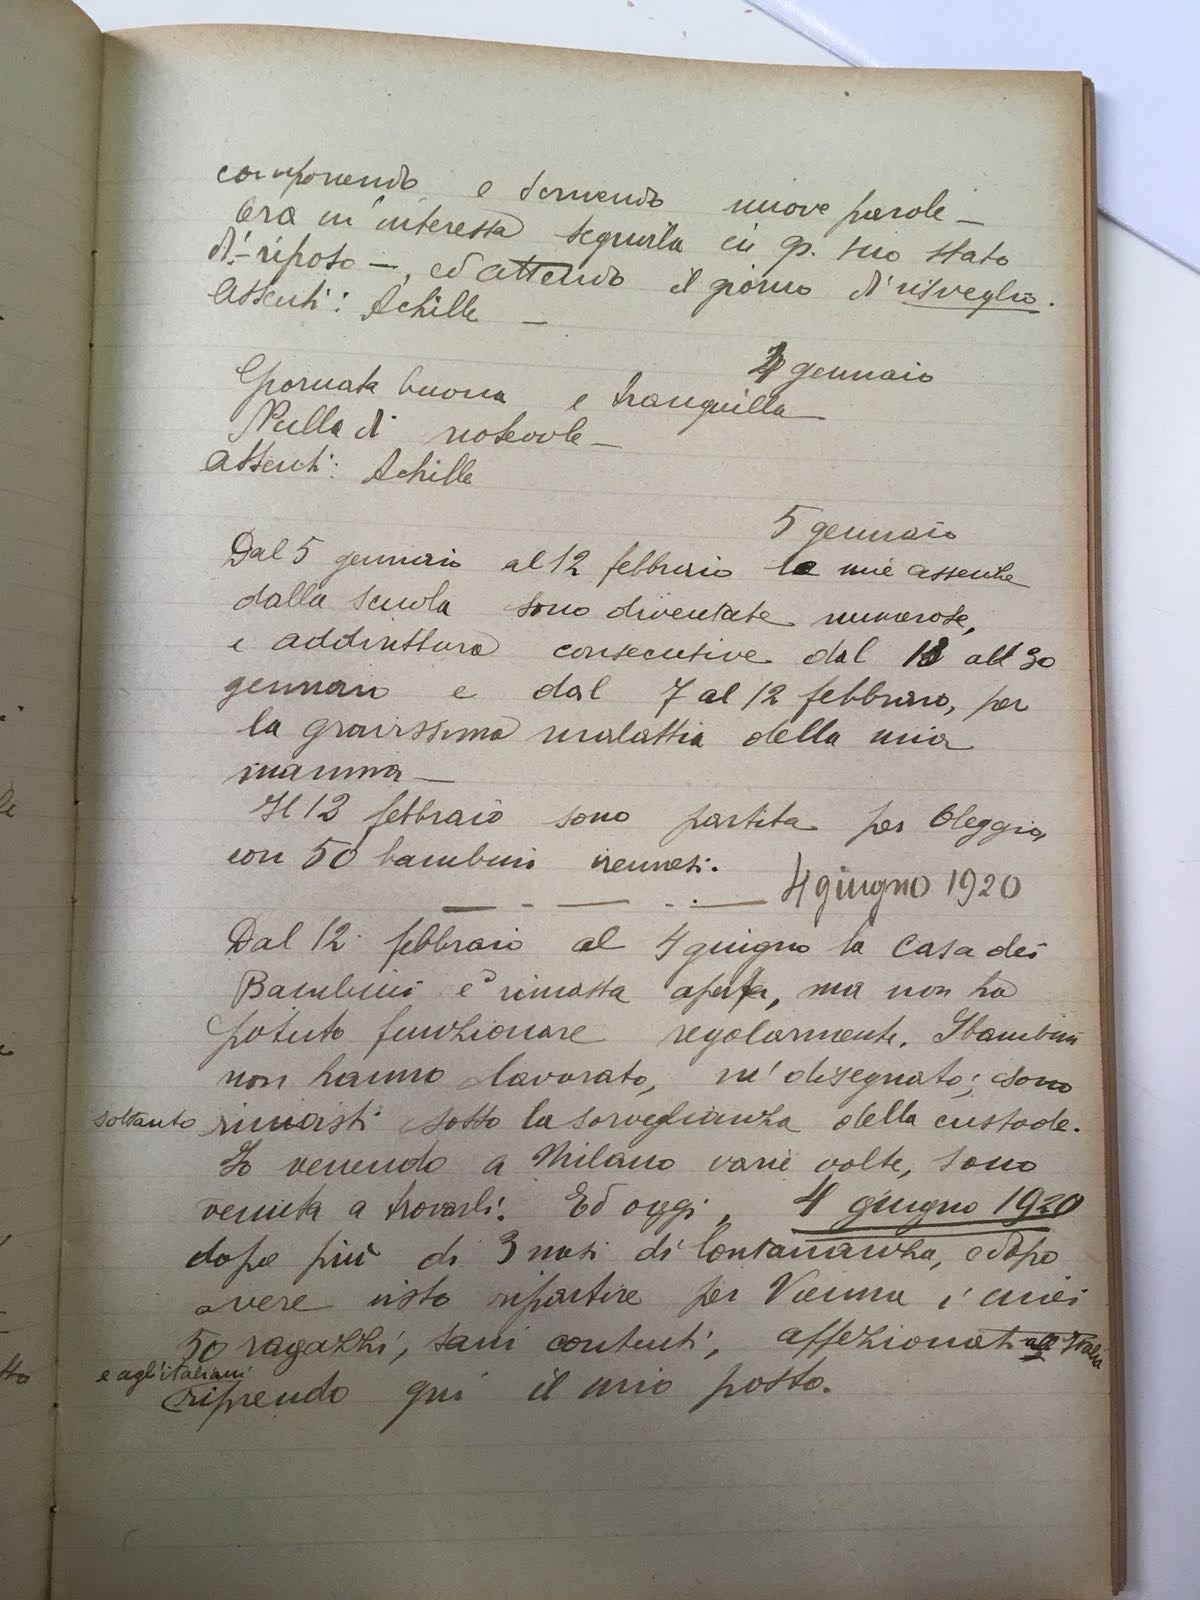 componendo e scrivendo nuove parole –
Ora m'interessa seguirla in q. suo stato
di – riposo –, ed attendo il giorno di risveglio.
Assenti: Achille –
4 gennaio
Giornata buona e tranquilla
Nulla di notevole –
Assenti: Achille
5 gennaio
Dal 5 gennaio al 12 febbraio le mie assenze
dalla scuola sono diventate numerose,
e addirittura consecutive dal 18 al 30
gennaio e dal 7 al 12 febbraio, per
la gravissima malattia della mia
mamma –
Il 12 febbraio sono partita per Oleggio,
con 50 bambini viennesi.
4 giugno 1920
Dal 12 febbraio al 4 giugno la Casa dei
Bambini è rimasta aperta, ma non ha
potuto funzionare regolarmente. I bambini
non hanno lavorato, né disegnato; sono
soltanto rimasti sotto la sorveglianza della custode.
Io venendo a Milano varie volte, sono
venuta a trovarli. Ed oggi, 4 giugno 1920
dopo più di 3 mesi di lontananza, e dopo
avere visto ripartire per Vienna i miei
50 ragazzi, sani contenti, affezionati all'Italia
e agl'italiani
riprendo qui il mio posto.